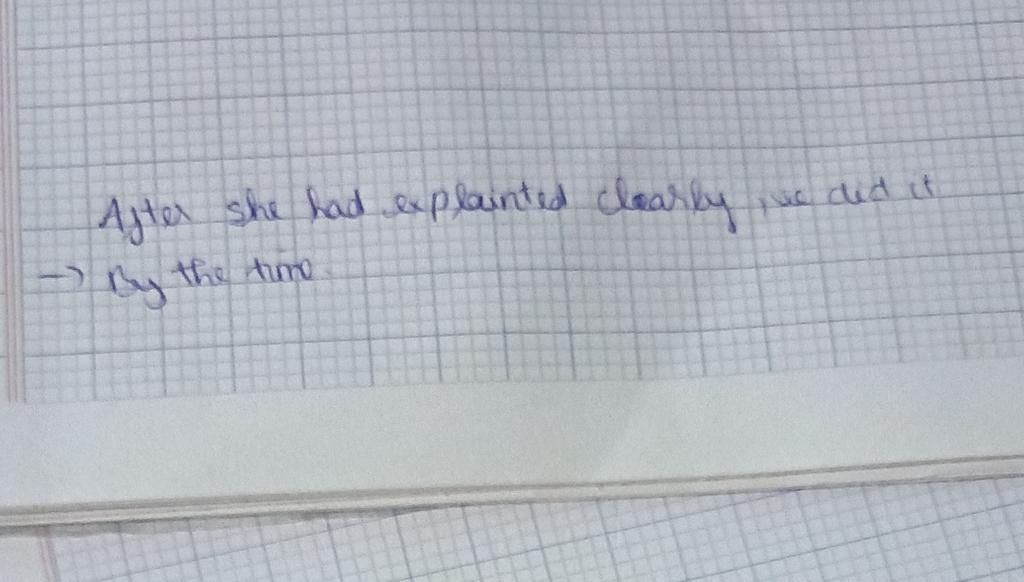 After she had explainted clearly, we did it
→ By the time